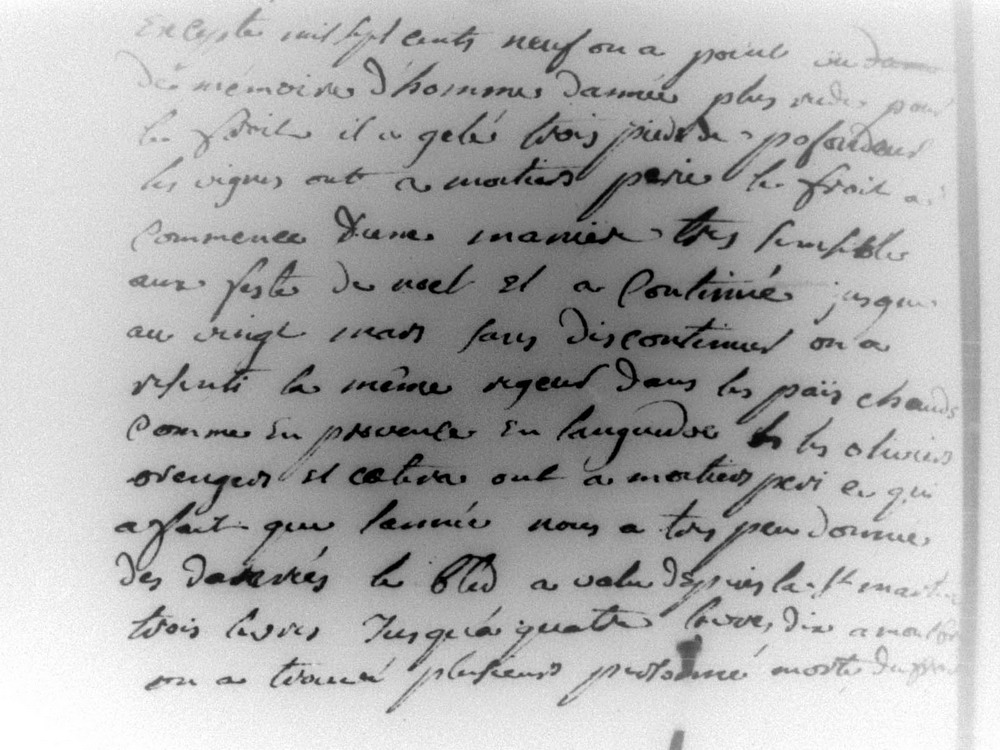 Excepte mil sept cents neuf on a point vu dans
de mémoire d'homme dannée plus rude pour
le froit il a gelé trois pieds de pofondeur
les vignes ont a moitiers perie le froit a
Commencé dune manier tres sensible
aux feste de noel Et a Continué jusque
au vingt mars sans discontinuer on a
resenti la même rigeur dans les païs chauds
Comme En provence En languedoc les oliviers
orengers et cætera ont a moitiers peri ce qui
a fait que lannée nous a tres peu donnée
des danrées le bled a valu depuis la St martin
trois livres Jusqu'a quatre livres dix a
on a trouvé plusieurs personne morte du froit